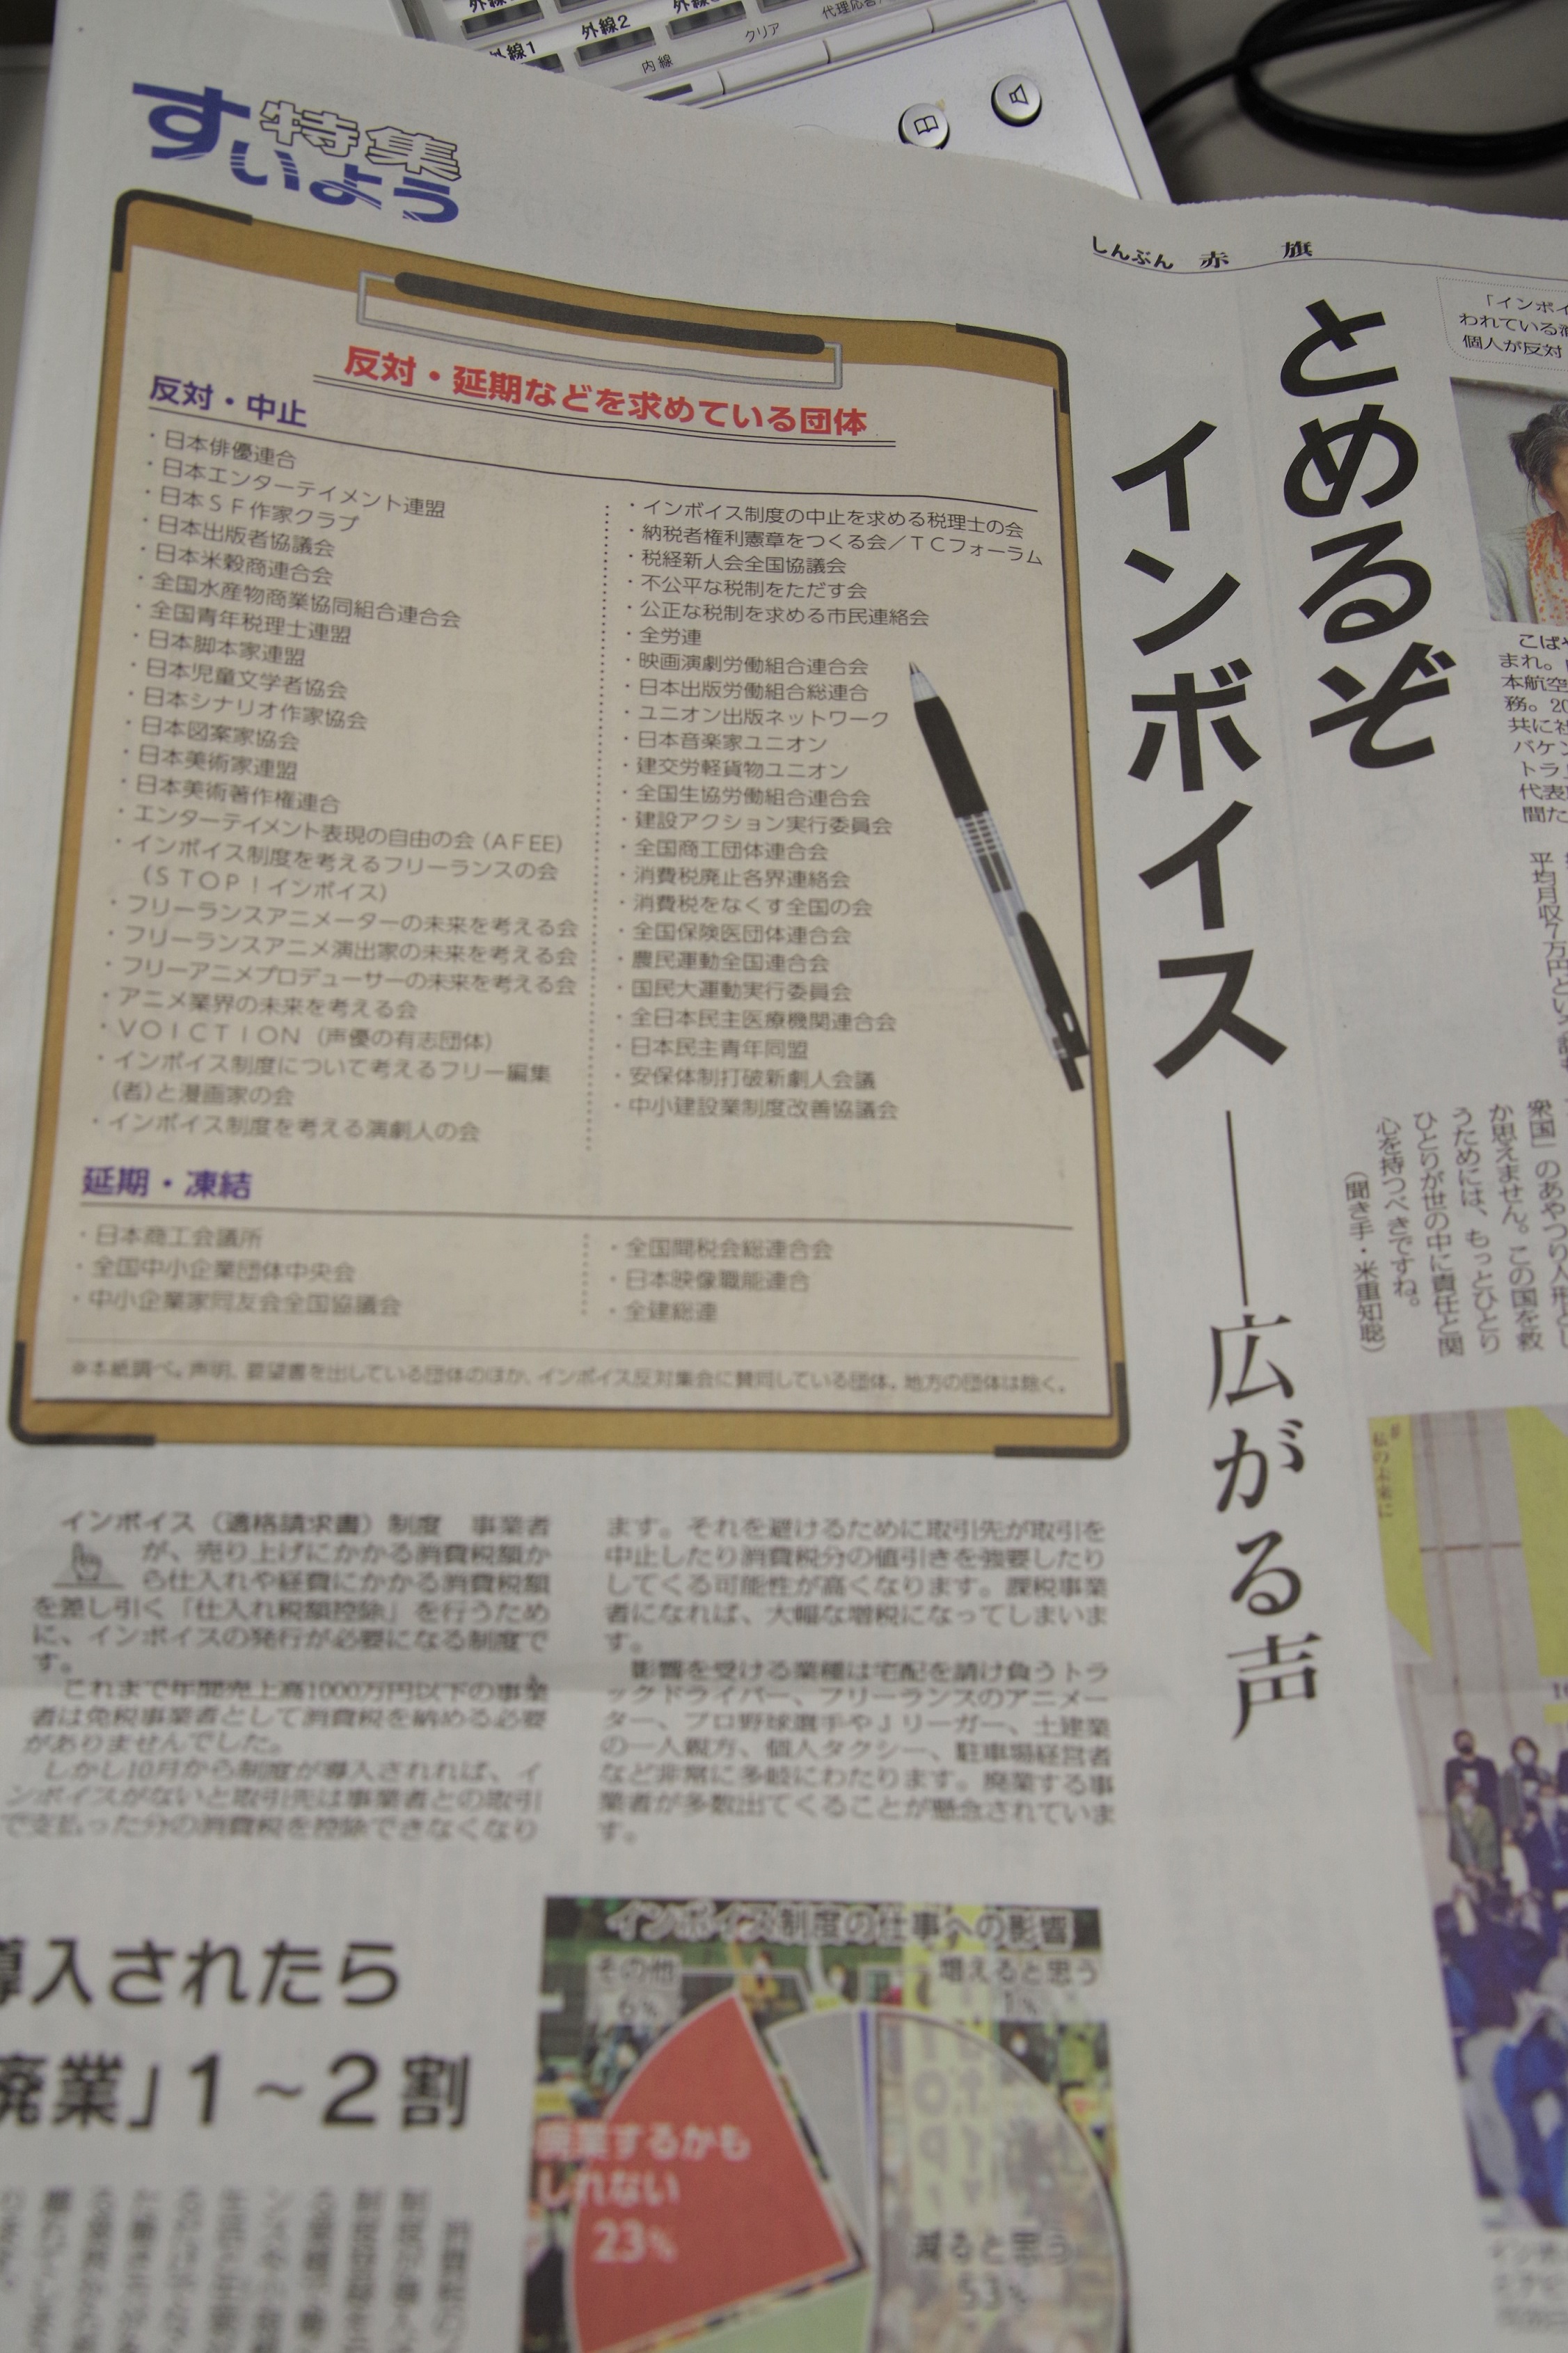 外線1
外線2
内線
クリア
特集
すいよう
しんぶん 赤 旗
とめるぞ
インボイス
――広がる声
反対・延期などを求めている団体
反対・中止
・日本俳優連合
・日本エンターテイメント連盟
・日本ＳＦ作家クラブ
・日本出版者協議会
・日本米穀商連合会
・全国水産物商業協同組合連合会
・全国青年税理士連盟
・日本脚本家連盟
・日本児童文学者協会
・日本シナリオ作家協会
・日本図案家協会
・日本美術家連盟
・日本美術著作権連合
・エンターテイメント表現の自由の会（AFEE）
・インボイス制度を考えるフリーランスの会
（ＳＴＯＰ！インボイス）
・フリーランスアニメーターの未来を考える会
・フリーランスアニメ演出家の未来を考える会
・フリーアニメプロデューサーの未来を考える会
・アニメ業界の未来を考える会
・ＶＯＩＣＴＩＯＮ（声優の有志団体）
・インボイス制度について考えるフリー編集
(者)と漫画家の会
・インボイス制度を考える演劇人の会
・インボイス制度の中止を求める税理士の会
・納税者権利憲章をつくる会／ＴＣフォーラム
・税経新人会全国協議会
・不公平な税制をただす会
・公正な税制を求める市民連絡会
・全労連
・映画演劇労働組合連合会
・日本出版労働組合総連合
・ユニオン出版ネットワーク
・日本音楽家ユニオン
・建交労軽貨物ユニオン
・全国生協労働組合連合会
・建設アクション実行委員会
・全国商工団体連合会
・消費税廃止各界連絡会
・消費税をなくす全国の会
・全国保険医団体連合会
・農民運動全国連合会
・国民大運動実行委員会
・全日本民主医療機関連合会
・日本民主青年同盟
・安保体制打破新劇人会議
・中小建設業制度改善協議会
延期・凍結
・日本商工会議所
・全国中小企業団体中央会
・中小企業家同友会全国協議会
・全国間税会総連合会
・日本映像職能連合
・全建総連
※本紙調べ。声明、要望書を出している団体のほか、インボイス反対集会に賛同している団体。地方の団体は除く。
「インボイ
われている
個人が反対
こばや
まれ。
本航空
務。20
共に社
バケン
トラ
代表
間た
平均月収7万円とい
衆国」のあやつり人形とし
か思えません。この国を救
うためには、もっとひとり
ひとりが世の中に責任と関
心を持つべきですね。
（聞き手・米重知聡）
私の未来に
インボイス（適格請求書）制度　事業者
が、売り上げにかかる消費税額か
ら仕入れや経費にかかる消費税額
を差し引く「仕入れ税額控除」を行うため
に、インボイスの発行が必要になる制度で
す。
これまで年間売上高1000万円以下の事業
者は免税事業者として消費税を納める必要
がありませんでした。
しかし10月から制度が導入されれば、イ
ンボイスがないと取引先は事業者との取引
で支払った分の消費税を控除できなくなり
ます。それを避けるために取引先が取引を
中止したり消費税分の値引きを強要したり
してくる可能性が高くなります。課税事業
者になれば、大幅な増税になってしまいま
す。
影響を受ける業種は宅配を請け負うトラ
ックドライバー、フリーランスのアニメー
ター、プロ野球選手やＪリーガー、土建業
の一人親方、個人タクシー、駐車場経営者
など非常に多岐にわたります。廃業する事
業者が多数出てくることが懸念されていま
す。
導入されたら
廃業」１～２割
インボイス制度の仕事への影響
その他
6%
増えると思う
1%
廃業するかも
しれない
23%
減ると思う
53%